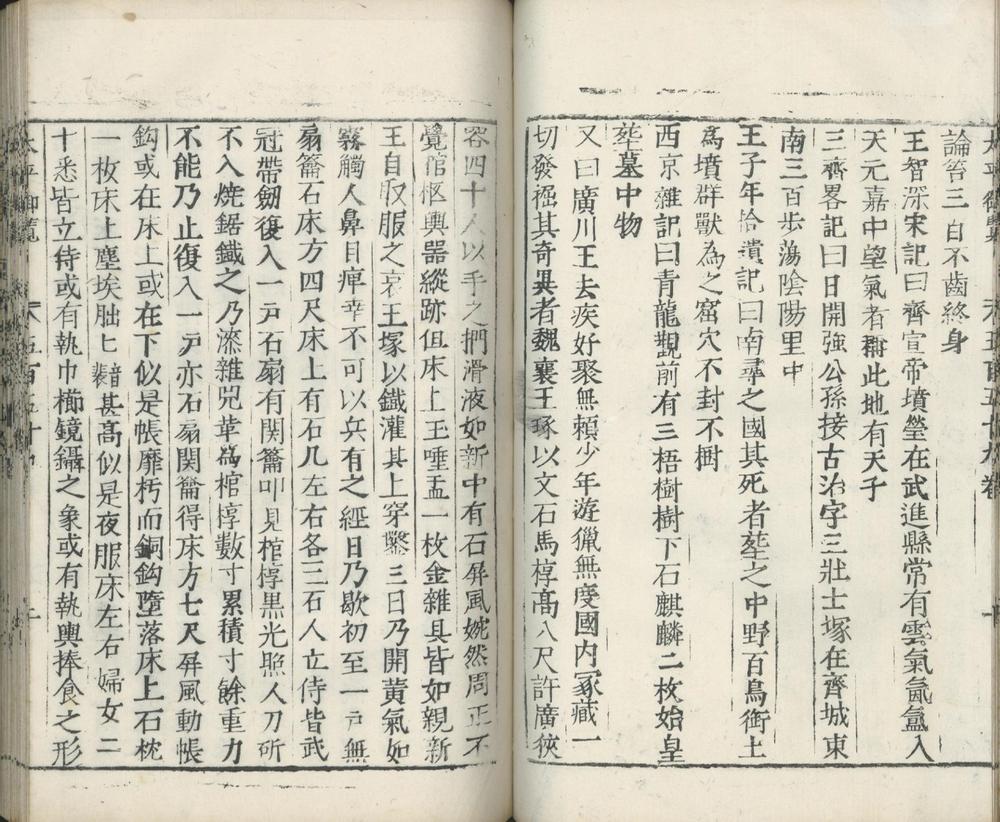 論笞三百不齒終身
王智深宋記曰齊宣帝墳塋在武進縣常有雲氣氤氳入
天元嘉中望氣者稱此地有天子
三齊畧記曰日開強公孫接古治字三壯士塚在齊城東
南三百步蕩陰陽里中
王子年拾遺記曰南尋之國其死者塟之中野百鳥銜土
為墳群獸為之窟穴不封不樹
西京雜記曰青龍觀前有三梧樹樹下石麒麟二枚始皇
塟墓中物
又曰廣川王去疾好聚無頼少年遊獵無度國内冢藏一
切發掘其奇異者魏襄王琢以文石馬椁髙八尺許廣狹
容四十人以手之捫滑液如新中有石屏風婉然周正不
覺棺柩輿器縱跡但床上玉唾盂一枚金雜具皆如親新
王自取服之哀王塚以鐵灌其上穿鑿三日乃開黄氣如
霧觸人鼻目痺幸不可以兵有之經日乃歇初至一戸無
扇籥石床方四尺床上有石几左右各三石人立侍皆武
冠帶劒復入一戸石扇有関籥叩見棺椁黒光照人刀斫
不入焼鋸鐵之乃漆雜兕革為棺椁數寸累積寸餘重力
不能乃止復入一戸亦石扇関籥得床方七尺屏風動帳
鈎或在床上或在下似是帳靡朽而銅鈎墮落床上石枕
一枚床上塵埃朏匕甚髙似是夜服床左右婦女二
十悉皆立侍或有執巾櫛鏡鑷之象或有執輿捧食之形
太平御覧